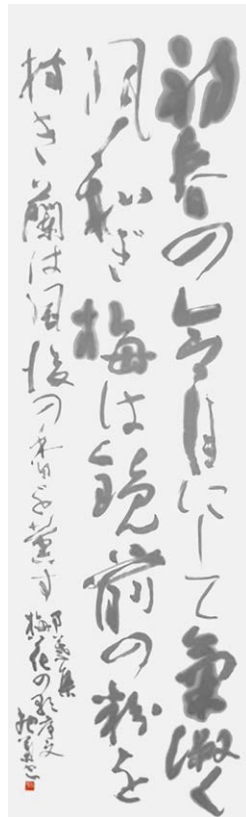 初春の令月にして氣淑く
風和ぎ梅は鏡前の粉を
披き蘭は珮後の香を薫す
万葉集
梅花の歌序文